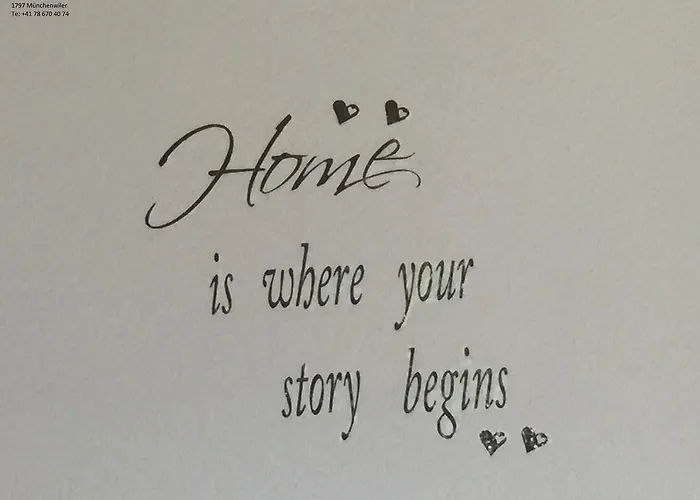 1797 Münchenwiler
Te: +41 78 670 40 74
Home
is where your
story begins